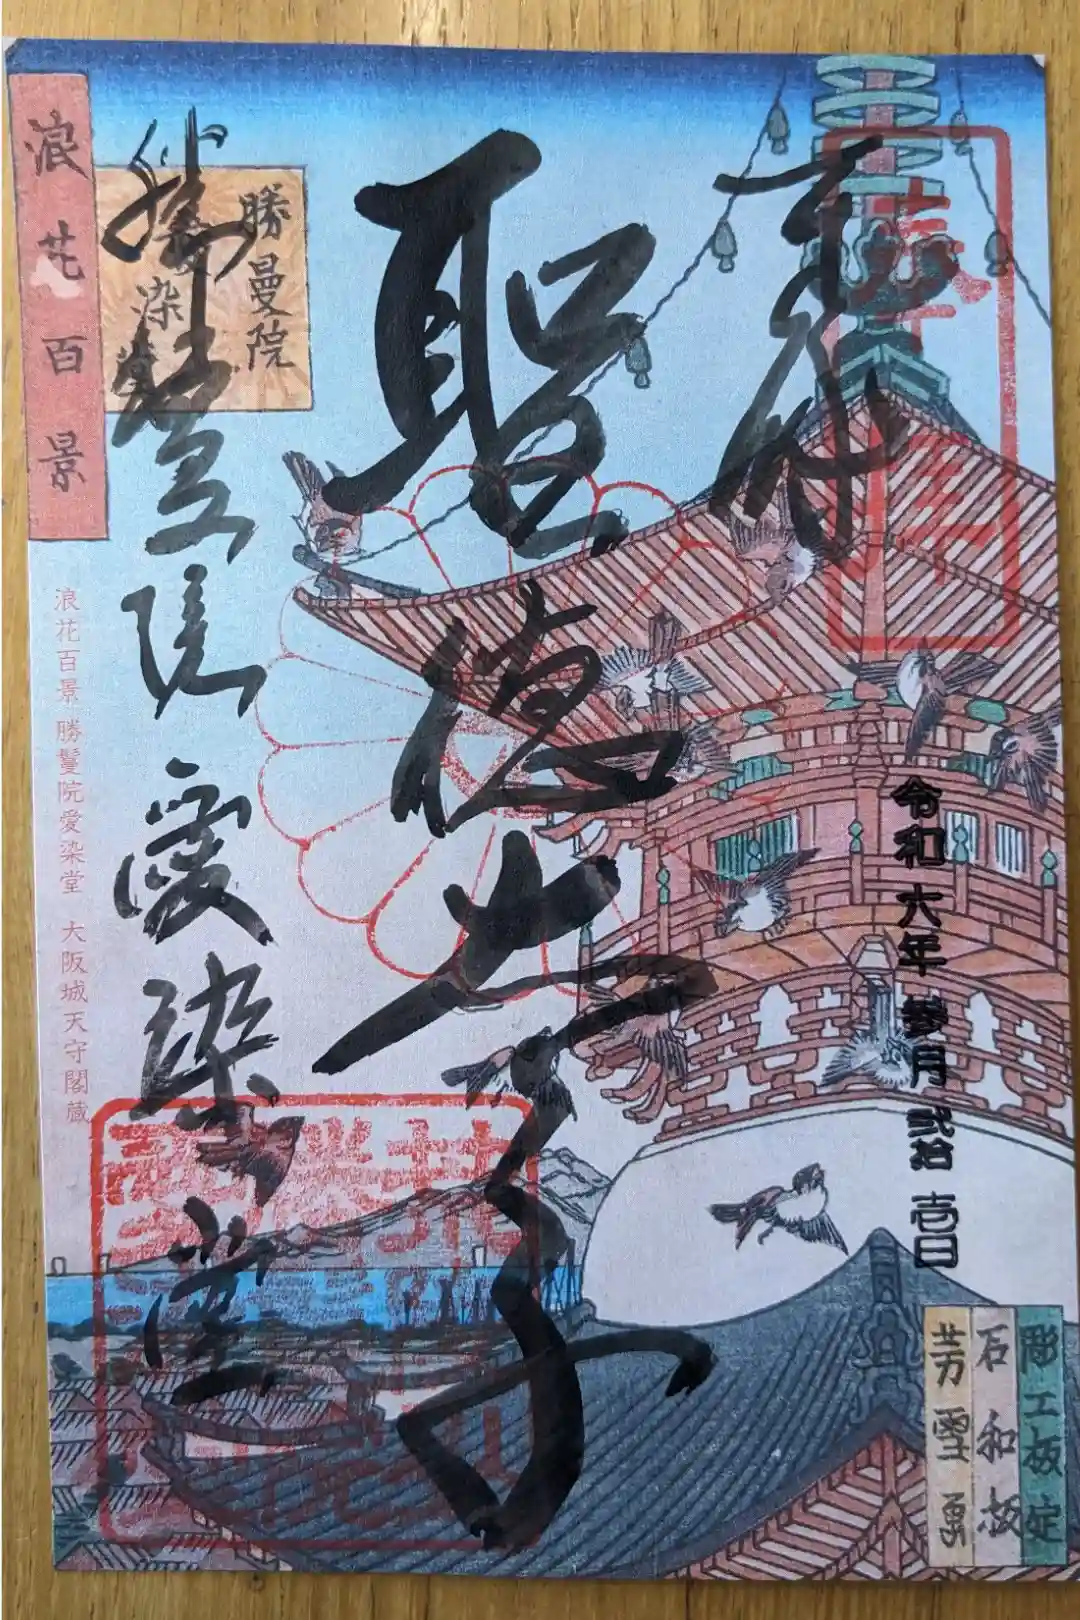 奉拝
令和六年 参月 弐拾 壱日
聖徳太子
勝鬘院 愛染堂
勝曼院
浪花百景
浪花百景 勝鬘院愛染堂 大阪城天守閣蔵
彫工板定
石和板
芳雪画